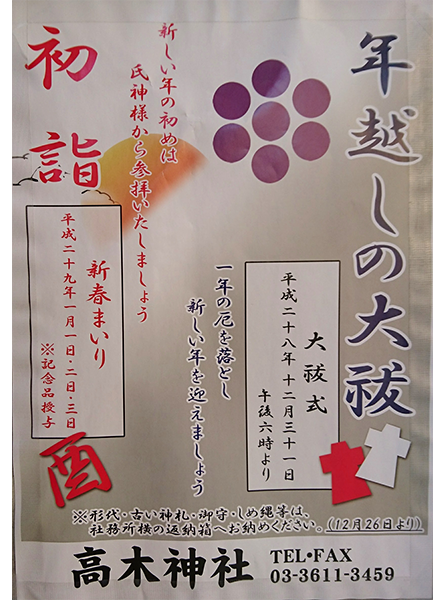 年越しの大祓
大祓式
平成二十八年 十二月三十一日
午後六時より
一年の厄を落とし
新しい年を迎えましょう
新しい年の初めは
氏神様から参拝いたしましょう
初詣
新春まいり
平成二十九年一月一日・二日・三日
※記念品授与
酉
※形代・古い神札・御守・しめ縄等は、
社務所横の返納箱へお納めください。(12月26日より)
高木神社
TEL•FAX
03-3611-3459